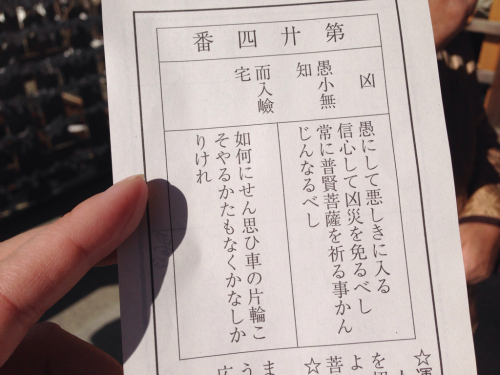 第廿四番
凶
愚小無
知
而入嶮
宅
愚にして悪しきに入る
信心して凶災を免るべし
常に普賢菩薩を祈る事かん
じんなるべし
如何にせん思ひ車の片輪こ
そやるかたもなくかなしか
りけれ
☆運
を
よ菩
☆
ま
う
広